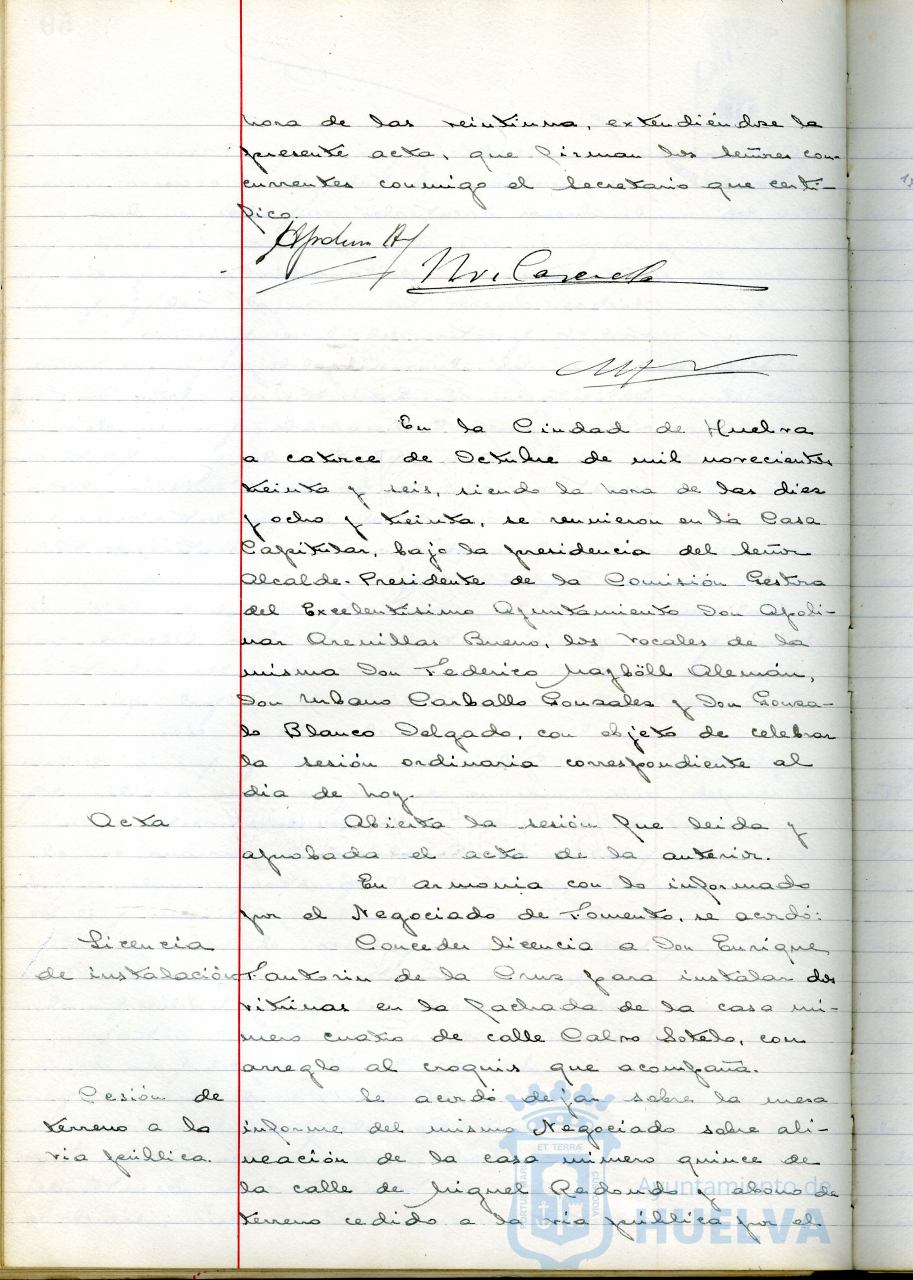 hora de las veintiuna, extendiéndose la
presente acta, que firman los señores con-
currentes conmigo el Secretario que certi-
fico.
En la Ciudad de Huelva
a catorce de Octubre de mil novecientos
treinta y seis, siendo la hora de las diez
y ocho y treinta, se reunieron en la Casa
Capitular, bajo la presidencia del Señor
Alcalde-Presidente de la Comisión Gestora
del Excelentísimo Ayuntamiento Don Apoli-
nar Arenillas Bueno, los Vocales de la
misma Don Federico Mayböll Alemán,
Don Urbano Carballo Gonzales y Don Gonza-
lo Blanco Delgado, con objeto de celebrar
la sesión ordinaria correspondiente al
día de hoy.
Acta
Abierta la sesión fue leida y
aprobada el acta de la anterior.
En armonia con lo informado
por el Negociado de Fomento, se acordó:
Licencia
de instalación
Conceder licencia a Don Enrique
Fantorin de la Cruz para instalar dos
vitrinas en la fachada de la casa nú-
mero cuatro de calle Calvo Sotelo, con
arreglo al croquis que acompaña.
Cesión de
terreno a la
vía pública.
Se acordó dejar sobre la mesa
informe del mismo Negociado sobre ali-
neación de la casa número quince de
la calle de Miguel Redondo y abono de
terreno cedido a la vía pública por el
ET TERRÆ
Ayuntamiento de
HUELVA